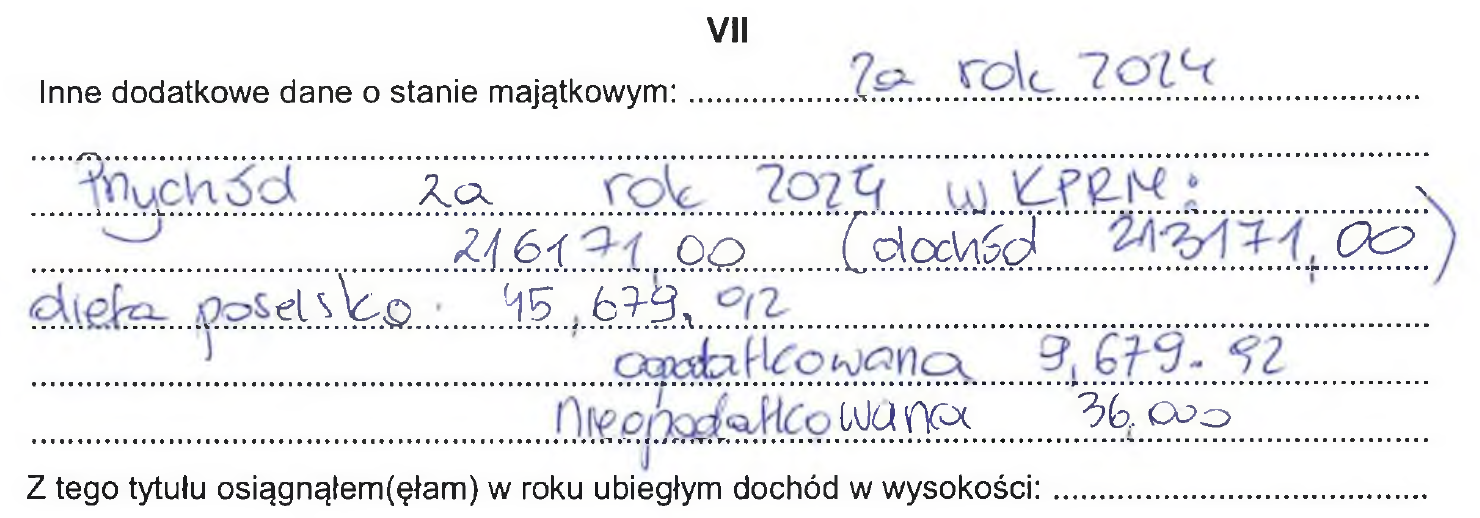 VII
Inne dodatkowe dane o stanie majątkowym: za rok 2024
Przychód za rok 2024 w KPRM:
216171,00 (dochód 213171,00)
dieta poselska 45,679,92
opodatkowana 9,679.92
nieopodatkowana 36.000
Z tego tytułu osiągnąłem(ęłam) w roku ubiegłym dochód w wysokości: